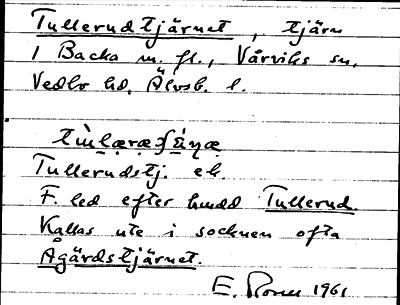 Tullerudtjärnet, tjärn
i Backa m. fl., Vårviks sn,
Vedbo hd, Älvsb. l.
Tullerudstj. ek.
F. led efter hmdd Tullerud.
Kallas ute i socknen ofta
Ågärdstjärnet.
E. 1961